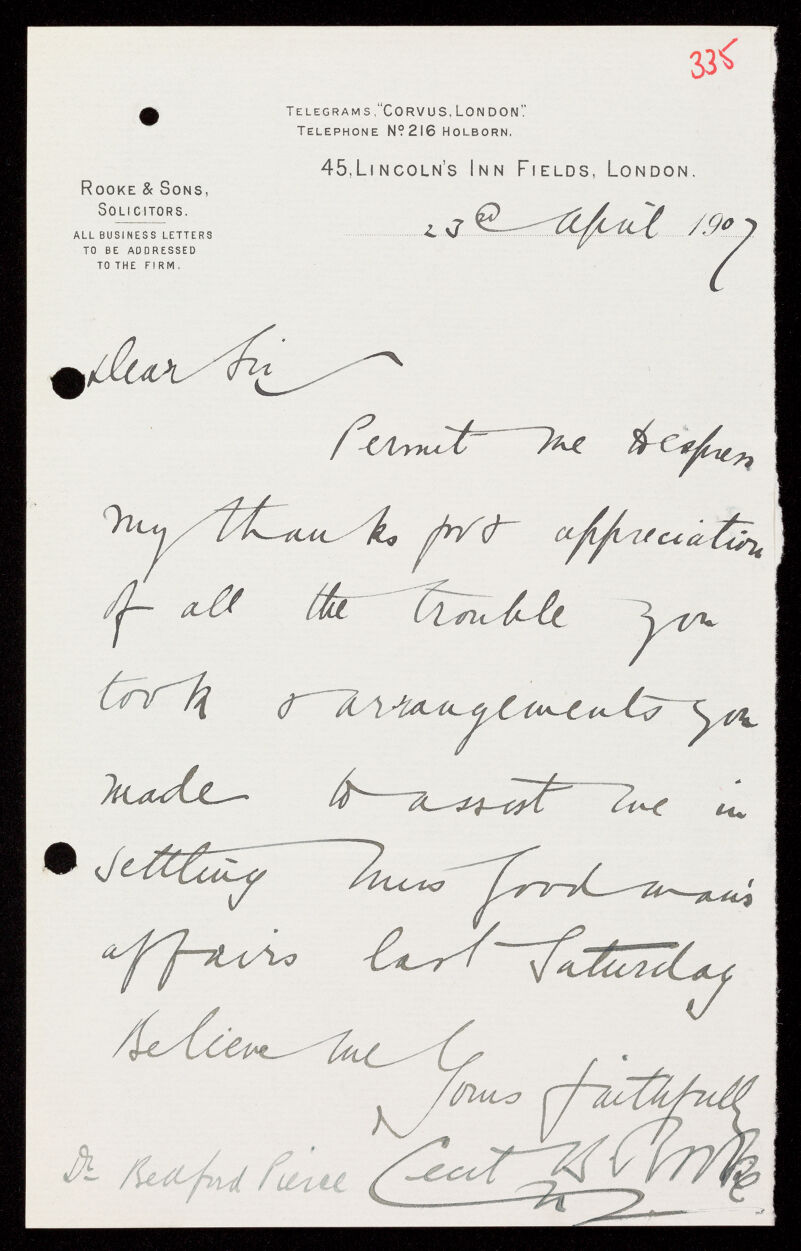 335
TELEGRAMS, "CORVUS, LONDON".
TELEPHONE Nº 216 HOLBORN.
45, LINCOLN'S INN FIELDS, LONDON.
ROOKE & SONS,
SOLICITORS.
ALL BUSINESS LETTERS
TO BE ADDRESSED
TO THE FIRM.
23rd April 1907
Dear Sir
Permit me to express
my thanks for & appreciation
of all the trouble you
took & arrangements you
made to assist me in
settling Miss Goodman's
affairs last Saturday
Believe me
Yours faithfully
Cecil B Rooke
Dr Bedford Pierce